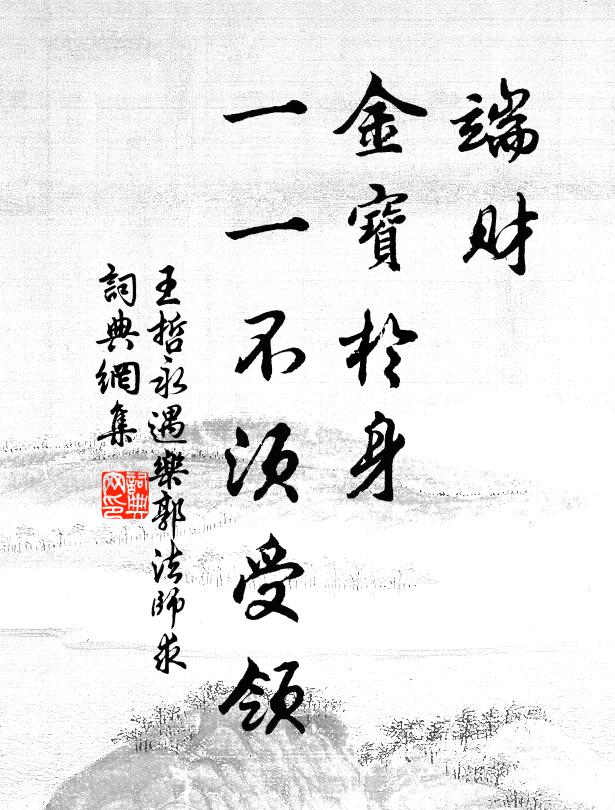 端財
金寶於身
一一不須受領
王哲永遇樂郭法師求
詞典網集
詞典
网印